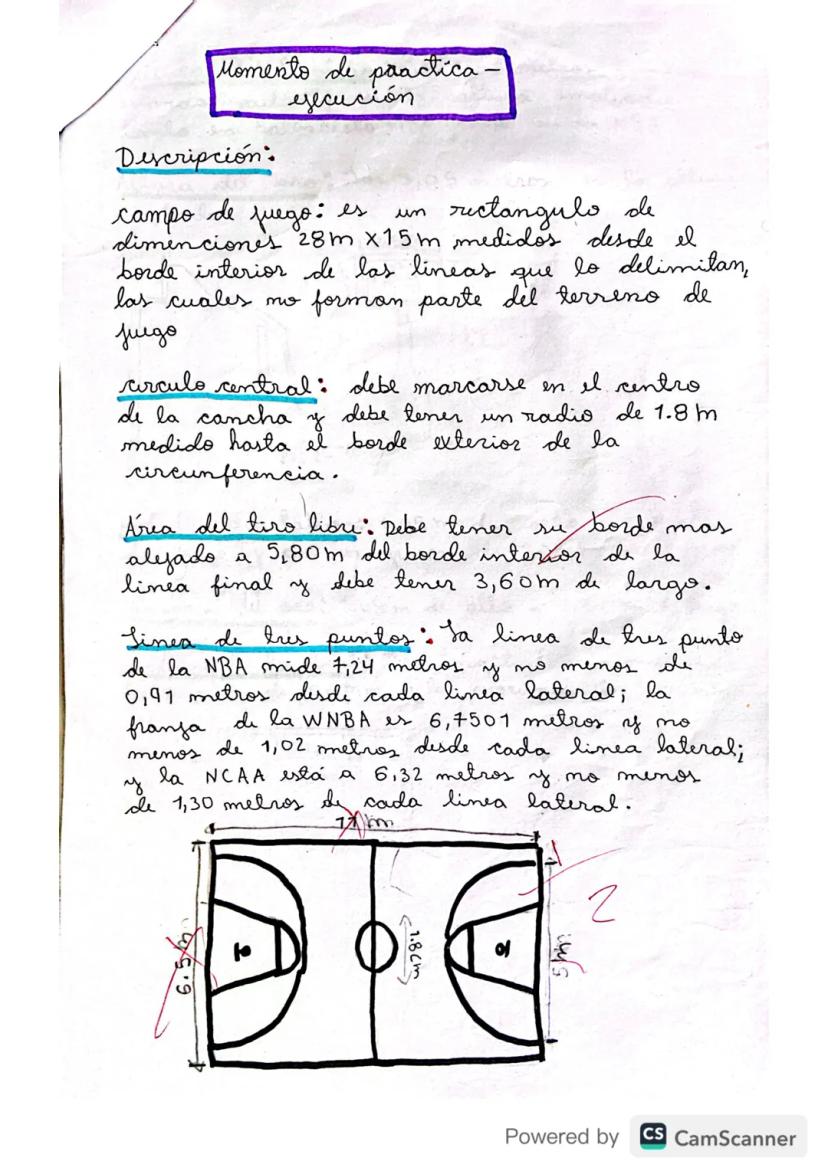 Momento de practica -
ejecución
Descripción:
campo de juego: es un rectangulo de
dimenciones 28m x 15m medidos desde el
borde interior de las lineas que lo delimitan,
las cuales no forman parte del terreno de
juego
circulo central: debe marcarse en el centro
de la cancha y debe tener un radio de 1.8 m
medido hasta el borde exterior de la
circunferencia.
Área del tiro libre: Debe tener su borde mas
alejado a 5,80m del borde interior de la
linea final y debe tener 3,60m de largo.
Linea de tres puntos: La linea de tres punto
de la NBA mide 7,24 metros y no menos de
0,91 metros desde cada linea lateral; la
franja de la WNBA es 6,7501 metros y no
menos de 1,02 metros desde cada linea lateral;
y la NCAA está a 6,32 metros y no menos
de 1,30 metros de cada linea lateral.
11 m
6.5 m
1.8cm
2
Powered by CS CamScanner